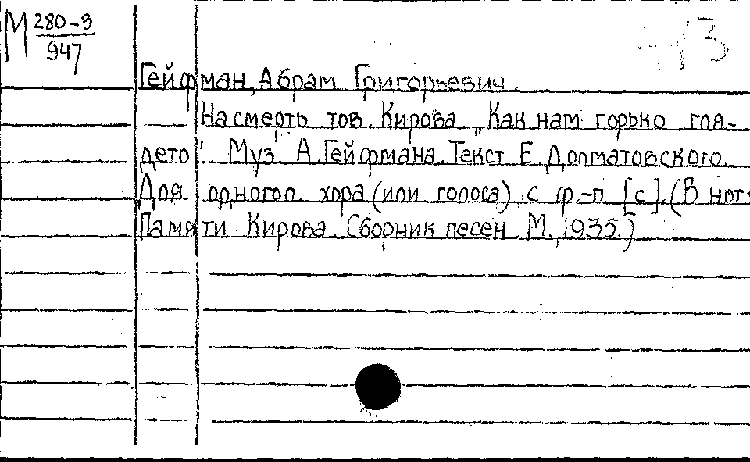 М 280-9
947
Гейфман, Абрам Григорьевич.
На смерть тов. Кирова „Как нам горько гля-
дето". Муз. А. Гейфмана. Текст Е. Долматовского.
Для одногол. хора (или голоса) с ф-п [с]. (В нот:
Памяти Кирова. Сборник песен М., 1935.)